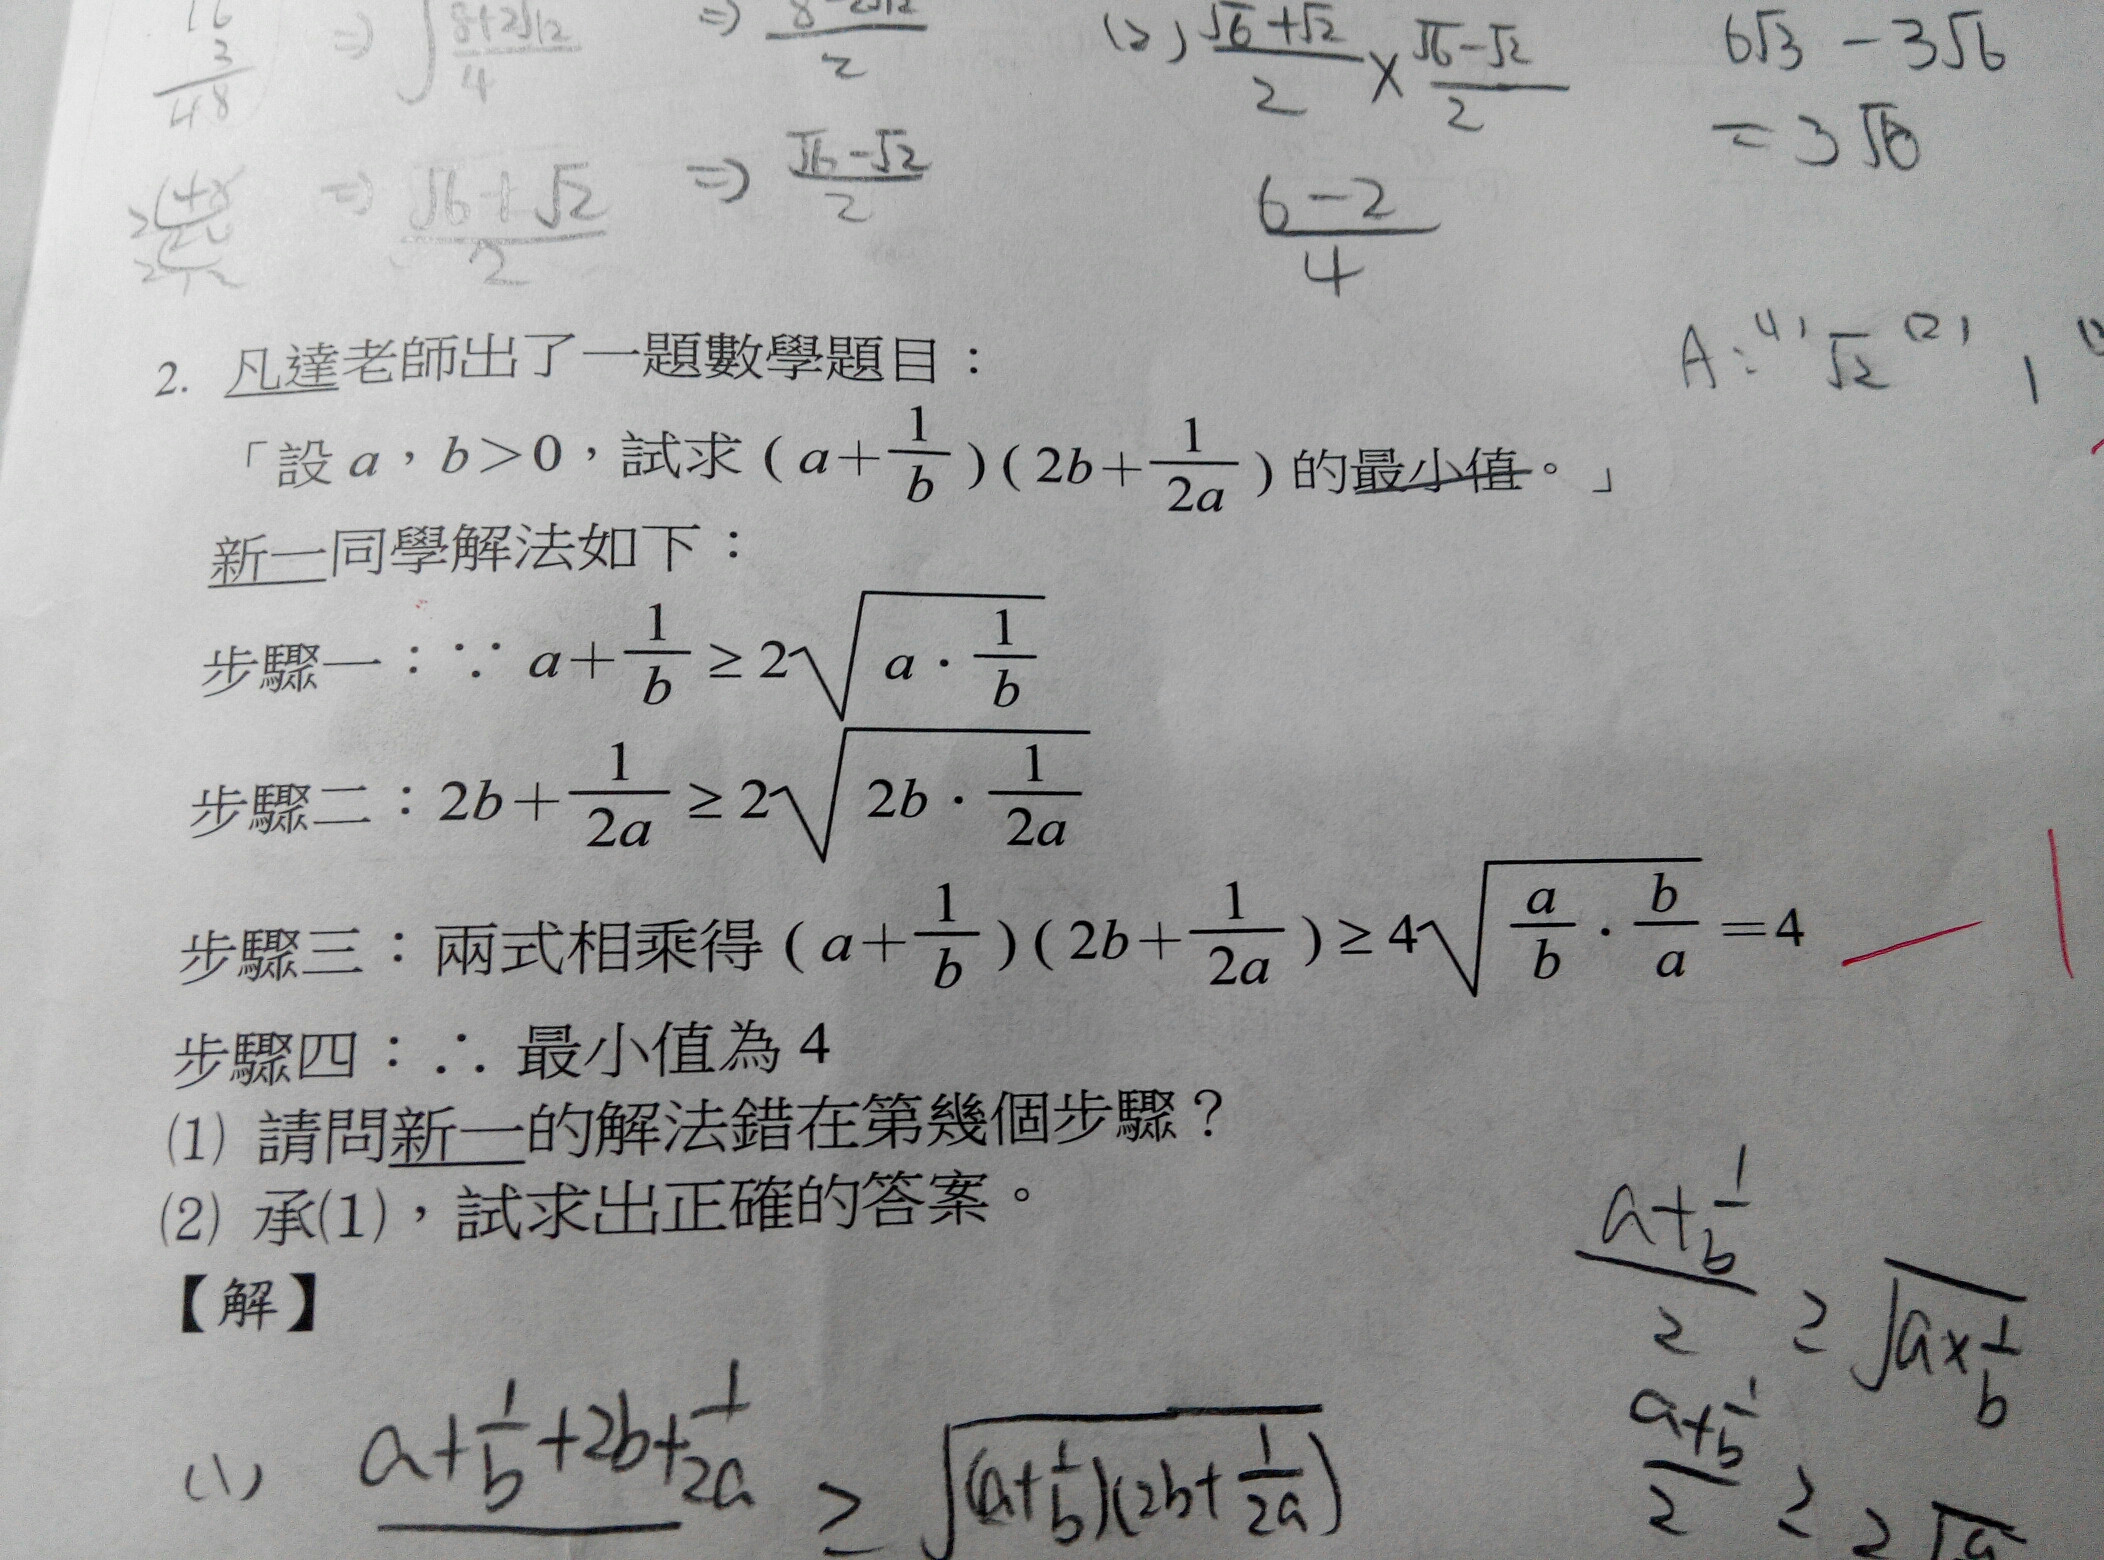 16
3
48
⇒ √(8+2√12)/4 ⇒ (8-2√12)/2 (2) (√6+√2)/2 × (√6-√2)/2 6√3 - 3√6
= 3√6
⇒ (√6+√2)/2 ⇒ (√6-√2)/2
(6-2)/4
A: (1) √2 (2) 1
2. 凡達老師出了一題數學題目：
「設 a，b>0，試求 (a+1/b)(2b+1/2a) 的最小值。」
新一同學解法如下：
步驟一：∵ a+1/b ≥ 2√(a·1/b)
步驟二：2b+1/2a ≥ 2√(2b·1/2a)
步驟三：兩式相乘得 (a+1/b)(2b+1/2a) ≥ 4√(a/b·b/a) =4
步驟四：∴ 最小值為 4
(1) 請問新一的解法錯在第幾個步驟？
(2) 承(1)，試求出正確的答案。
【解】
(a+1/b)/2 ≥ √(a×1/b)
(1) a+1/b+2b+1/2a ≥ √((a+1/b)(2b+1/2a))
(a+1/b)/2 ≥ 2√a